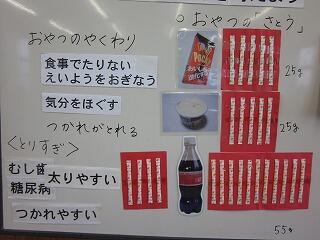 ○ おやつの「さとう」
おやつのやくわり
食事でたりない
えいようをおぎなう
気分をほぐす
つかれがとれる
<とりすぎ>
むし歯
太りやすい
糖尿病
つかれやすい
25g
25g
55g